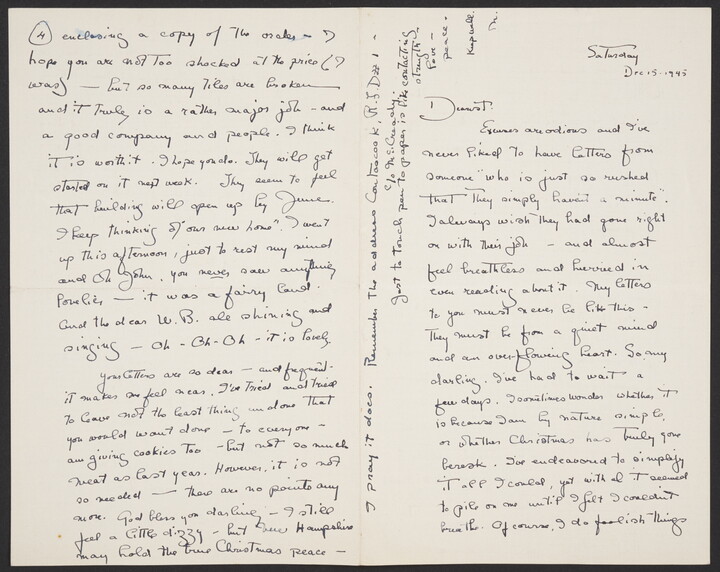 Saturday
Dec. 15 - 1945
Dearest:
Excuses are odious and I've
never liked to have letters from
someone "who is just so rushed
that they simply haven't a minute".
I always wish they had gone right
on with their job - and almost
feel breathless and hurried in
even reading about it. My letters
to you must never be like this -
They must be from a quiet mind
and an over-flowing heart. So my
darling, I've had to wait a
few days. I sometimes wonder whether it
is because I am by nature simple,
or whether Christmas has truly gone
bersek. I've endeavored to simplify
it all I could, yet with it seemed
to pile on one until I felt I couldn't
breathe. Of course, I do foolish things
4 enclosing a copy of the order - I
hope you are not too shocked at the price (I
was) - but so many tiles are broken
and it truly is a rather major job - and
a good company and people. I think
it is worth it. I hope you do. They will get
started on it next week. They seem to feel
that building will open up by June.
I keep thinking of "our new home". I went
up this afternoon, just to rest my mind
and Oh John, you never saw anything
lovelier - it was a fairy land.
And the dear W.B. all shining and
singing - Oh - Oh - Oh - it is lovely.
Your letters are so dear - and frequent -
it makes me feel near. I've tried and tried
to leave not the least thing undone that
you would want done - to everyone -
am giving cookies too - but not so much
meat as last year. However, it is not
so needed - there are no points any
more. God bless you darling - I still
feel a little dizzy - but New Hampshire
may hold the true Christmas peace -
I pray it does. Remember the address Contoocook, R.F.D. #1 -
c/o McCready.
Just to touch pen to paper is like contacting
strength,
love -
peace.
Keep well.